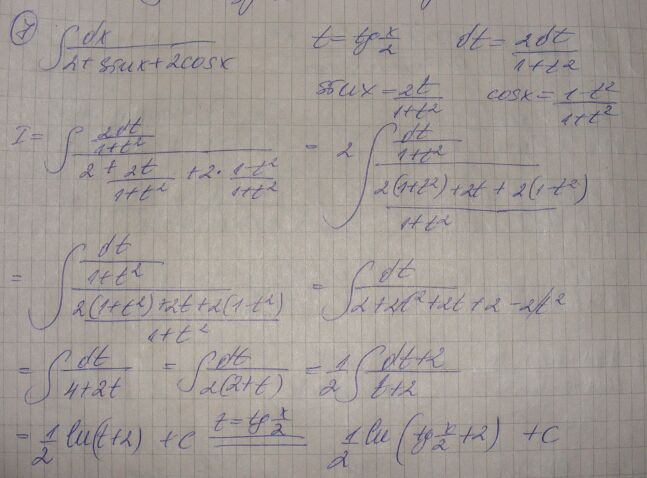 7 ∫ dx/(2+sinx+2cosx) t = tg x/2 dt = 2dt/(1+t²)
sinx = 2t/(1+t²) cosx = (1-t²)/(1+t²)
I = ∫ (2dt/(1+t²))/(2 + 2t/(1+t²) + 2·(1-t²)/(1+t²)) = 2 ∫ (dt/(1+t²))/((2(1+t²)+2t+2(1-t²))/(1+t²))
= ∫ (dt/(1+t²))/((2(1+t²)+2t+2(1-t²))/(1+t²)) = ∫ dt/(2+2t²+2t+2-2t²)
= ∫ dt/(4+2t) = ∫ dt/(2(2+t)) = 1/2 ∫ (dt+2)/(t+2)
= 1/2 ln(t+2) + C t = tg x/2 1/2 ln(tg x/2 + 2) + C